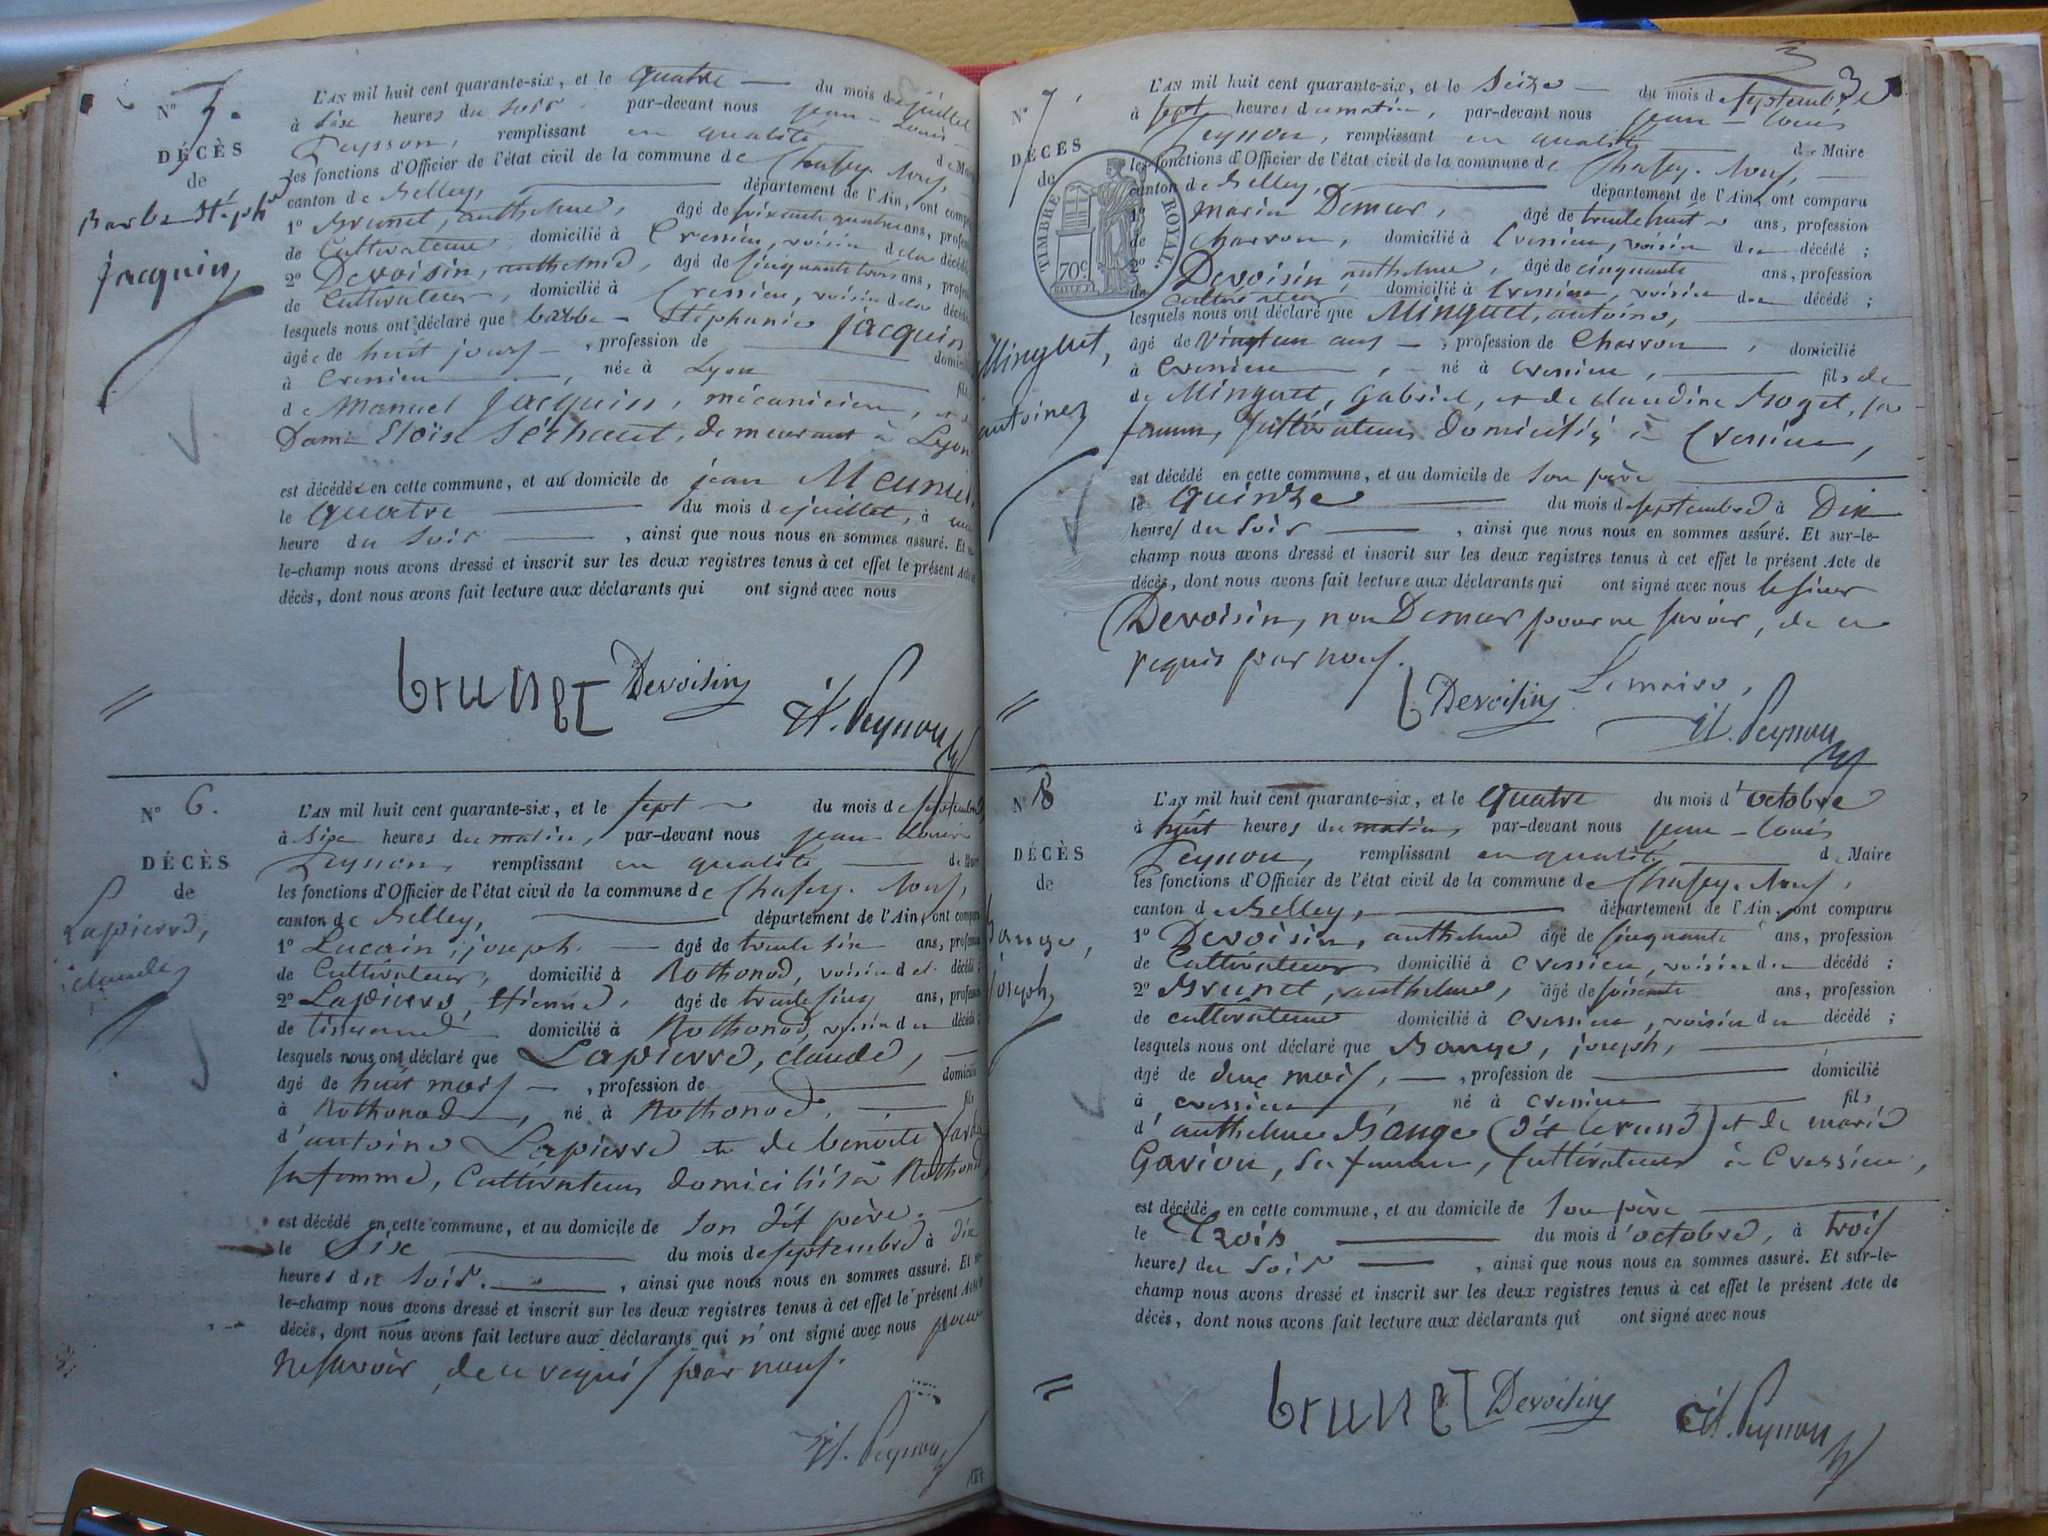 N° 5.
DÉCÈS
de
Barbe Stéph
Jacquin
L'AN mil huit cent quarante-six, et le quatre du mois de juillet
à six heures du soir par-devant nous jean-Louis
Peysson, remplissant en qualité de Maire
les fonctions d'Officier de l'état civil de la commune de Chasey-Nous,
canton de Belley, département de l'Ain, ont comparu
1° Brunet, anthelme, âgé de soixante quatre ans, profession
de Cultivateur domicilié à Cressieu, voisin de la décédée
2° Devoisin, anthelme, âgé de cinquante trois ans, profession
de Cultivateur, domicilié à Cressieu, voisin de la décédée
lesquels nous ont déclaré que barbe Stéphanie jacquin
âgée de huit jours, profession de domiciliée
à Cressieu, née à Lyon fille
de Manuel Jacquin, mécanicien, et de
Dame Eloïse demeurant à Lyon
est décédée en cette commune, et au domicile de jean Meunier,
le quatre du mois de juillet, à une
heure du soir, ainsi que nous nous en sommes assuré. Et sur-
le-champ nous avons dressé et inscrit sur les deux registres tenus à cet effet le présent Acte de
décès, dont nous avons fait lecture aux déclarants qui ont signé avec nous
brunet Devoisin Peysson
N° 6.
DÉCÈS
de
Lapierre,
claude
L'AN mil huit cent quarante-six, et le sept du mois de septembre
à six heures du matin, par-devant nous jean-Louis
Peysson, remplissant en qualité de Maire
les fonctions d'Officier de l'état civil de la commune de Chasey-Nous,
canton de Belley, département de l'Ain, ont comparu
1° Lucain, joseph âgé de trente six ans, profession
de Cultivateur, domicilié à Rothonod, voisin du décédé;
2° Lapierre, Etienne, âgé de trente cinq ans, profession
de tisserand domicilié à Rothonod, voisin du décédé;
lesquels nous ont déclaré que Lapierre, claude,
âgé de huit mois, profession de domicilié
à Rothonod, né à Rothonod, fils
d'antoine Lapierre et de benoite
sa femme, Cultivateurs domiciliés à Rothonod
est décédé en cette commune, et au domicile de son dit père.
le Six du mois de septembre à dix
heures du soir, ainsi que nous nous en sommes assuré. Et sur-
le-champ nous avons dressé et inscrit sur les deux registres tenus à cet effet le présent Acte de
décès, dont nous avons fait lecture aux déclarants qui n'ont signé avec nous pour
ne savoir, de ce requis par nous.
Peysson
3
N° 7.
DÉCÈS
de
TIMBRE ROYAL.
70c
Minguet,
antoine
L'AN mil huit cent quarante-six, et le Seize du mois de septembre
à sept heures du matin, par-devant nous jean-louis
Peysson, remplissant en qualité de Maire
les fonctions d'Officier de l'état civil de la commune de Chasey-Nous,
canton de Belley, département de l'Ain, ont comparu
1° marin Demeur, âgé de trente huit ans, profession
de Charron, domicilié à Cressieu, voisin du décédé;
2° Devoisin, anthelme, âgé de cinquante ans, profession
de cultivateur domicilié à Cressieu, voisin du décédé;
lesquels nous ont déclaré que Minguet, antoine,
âgé de Vingt un ans, profession de Charron, domicilié
à Cressieu, né à Cressieu, fils de
de Minguet, Gabriel, et de claudine Roget, sa
femme, Cultivateurs domiciliés à Cressieu,
est décédé en cette commune, et au domicile de son père
le quinze du mois de septembre à Dix
heures du soir, ainsi que nous nous en sommes assuré. Et sur-le-
champ nous avons dressé et inscrit sur les deux registres tenus à cet effet le présent Acte de
décès, dont nous avons fait lecture aux déclarants qui ont signé avec nous le sieur
Devoisin, non Demeur pour ne savoir, de ce
requis par nous.
Devoisin Le maire,
Peysson
N° 8
DÉCÈS
de
Bange,
joseph
L'AN mil huit cent quarante-six, et le quatre du mois d'octobre
à huit heures du matin, par-devant nous jean-louis
Peysson, remplissant en qualité de Maire
les fonctions d'Officier de l'état civil de la commune de Chasey-Nous,
canton de Belley, département de l'Ain, ont comparu
1° Devoisin, anthelme âgé de cinquante ans, profession
de Cultivateur domicilié à Cressieu, voisin du décédé;
2° Brunet, anthelme, âgé de soixante ans, profession
de cultivateur domicilié à Cressieu, voisin du décédé;
lesquels nous ont déclaré que Bange, joseph,
âgé de deux mois, profession de domicilié
à Cressieu, né à Cressieu fils
d'anthelme Bange (dit ) et de marie
Gavion, sa femme, Cultivateurs à Cressieu,
est décédé en cette commune, et au domicile de son père
le Trois du mois d'octobre, à trois
heures du soir, ainsi que nous nous en sommes assuré. Et sur-le-
champ nous avons dressé et inscrit sur les deux registres tenus à cet effet le présent Acte de
décès, dont nous avons fait lecture aux déclarants qui ont signé avec nous
brunet Devoisin Peysson